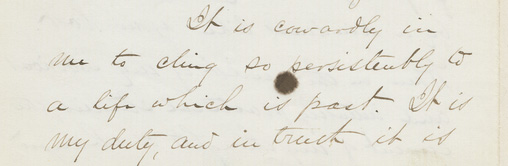 It is cowardly in
me to cling so persistently to
a life which is past. It is
my duty, and in truth it is